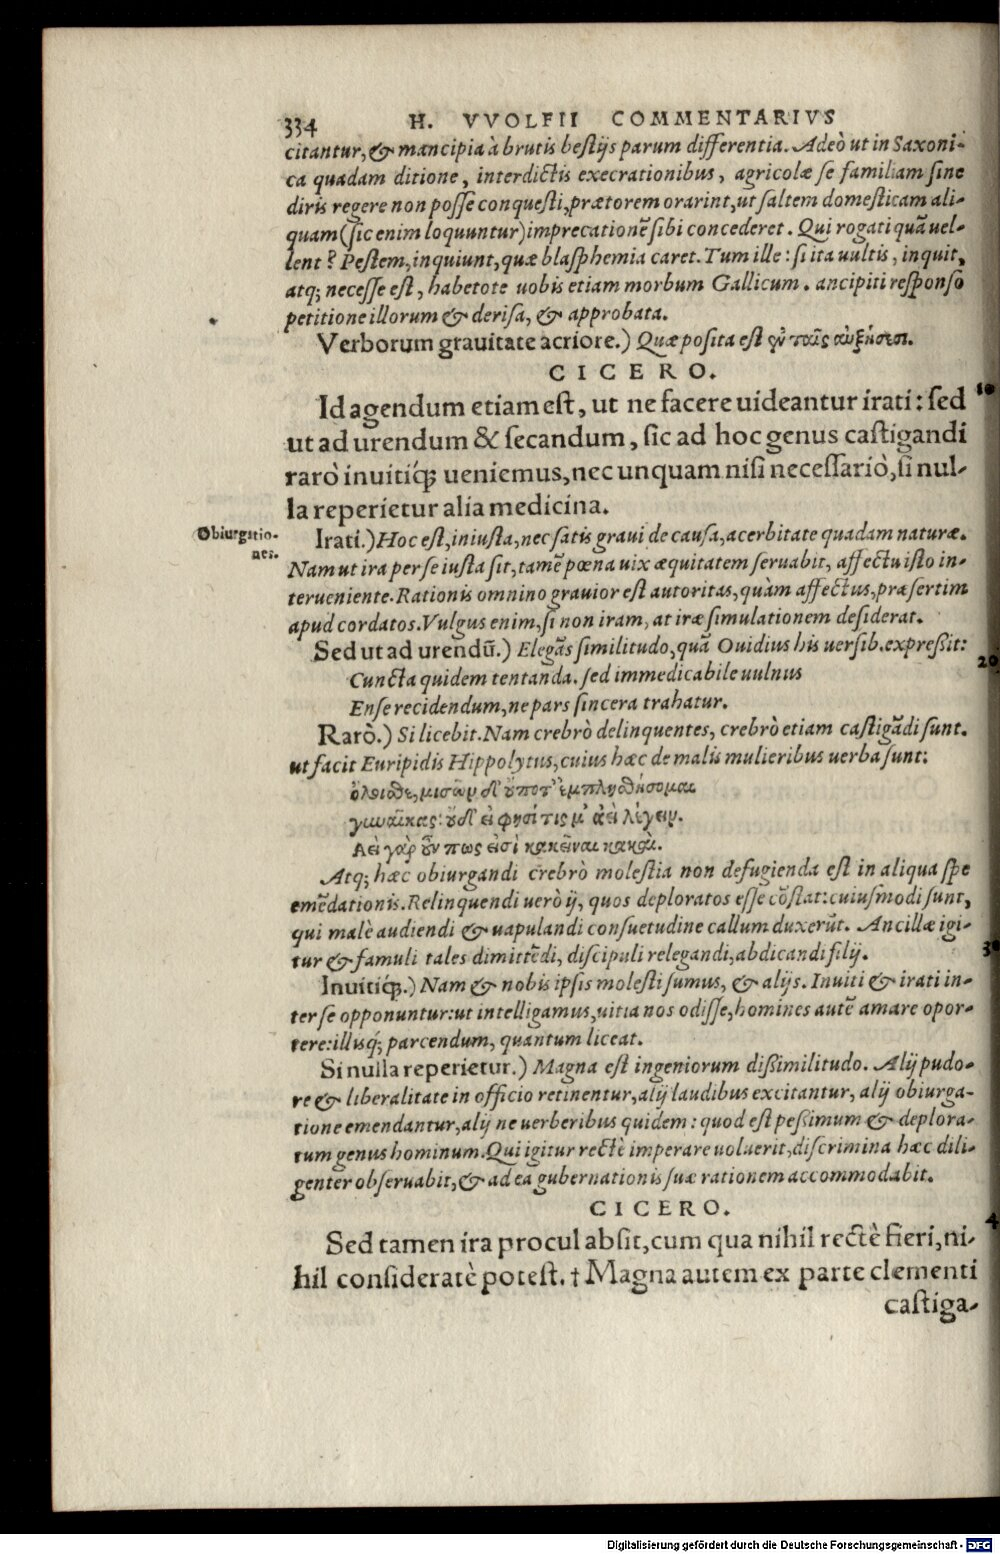 334 H. VVOLFII COMMENTARIVS
citantur, & mancipia à brutis bestijs parum differentia. Adeò ut in Saxoni-
ca quadam ditione, interdictis execrationibus, agricolæ se familiam sine
diris regere non posse conquesti, prætorem orarint, ut saltem domesticam ali-
quam (sic enim loquuntur) imprecationē sibi concederet. Qui rogati quā uel-
lent? Pestem, inquiunt, quæ blasphemia caret. Tum ille: si ita uultis, inquit,
atq; necesse est, habetote uobis etiam morbum Gallicum. ancipiti responso
petitione illorum & derisa, & approbata.
Verborum grauitate acriore.) Quæ posita est ἐν ταῖς αὐξήσεσι.
CICERO.
Id agendum etiam est, ut ne facere uideantur irati: sed 10
ut ad urendum & secandum, sic ad hoc genus castigandi
rarò inuitiq́; ueniemus, nec unquam nisi necessariò, si nul-
la reperietur alia medicina.
Obiurgatio-
nes.
Irati.) Hoc est, iniusta, nec satis graui de causa, acerbitate quadam naturæ.
Nam ut ira per se iusta sit, tamē pœna uix æquitatem seruabit, affectu isto in-
terueniente. Rationis omnino grauior est autoritas, quàm affectus, præsertim
apud cordatos. Vulgus enim, si non iram, at iræ simulationem desiderat.
Sed ut ad urendū.) Elegās similitudo, quā Ouidius his uersib. expreßit:
20
Cuncta quidem tentanda. sed immedicabile uulnus
Ense recidendum, ne pars sincera trahatur.
Rarò.) Si licebit. Nam crebrò delinquentes, crebrò etiam castigādi sunt.
ut facit Euripidis Hippolytus, cuius hæc de malis mulieribus uerba sunt:
ὄλοισθε, μισῶν δ' οὔποτ' ἐμπλησθήσομαι
γυναῖκας: οὐδ' εἰ φησί τις μ' ἀεὶ λέγειν.
Αεὶ γὰρ οὖν πως εἰσὶ κακεῖναι κακαὶ.
Atq; hæc obiurgandi crebrò molestia non defugienda est in aliqua spe
emēdationis. Relinquendi uerò ij, quos deploratos esse cōstat: cuiusmodi sunt,
qui malè audiendi & uapulandi consuetudine callum duxerūt. Ancillæ igi-
tur & famuli tales dimittēdi, discipuli relegandi, abdicandi filij.
30
Inuitiq́;.) Nam & nobis ipsis molesti sumus, & alijs. Inuiti & irati in-
ter se opponuntur: ut intelligamus, uitia nos odisse, homines autē amare opor-
tere: illisq́; parcendum, quantum liceat.
Si nulla reperietur.) Magna est ingeniorum dißimilitudo. Alij pudo-
re & liberalitate in officio retinentur, alij laudibus excitantur, alij obiurga-
tione emendantur, alij ne uerberibus quidem: quod est peßimum & deplora-
tum genus hominum. Qui igitur rectè imperare uoluerit, discrimina hæc dili-
genter obseruabit, & ad ea gubernationis suæ rationem accommodabit.
CICERO.
4
Sed tamen ira procul absit, cum qua nihil rectè fieri, ni-
hil consideratè potest. † Magna autem ex parte clementi
castiga-
Digitalisierung gefördert durch die Deutsche Forschungsgemeinschaft - DFG